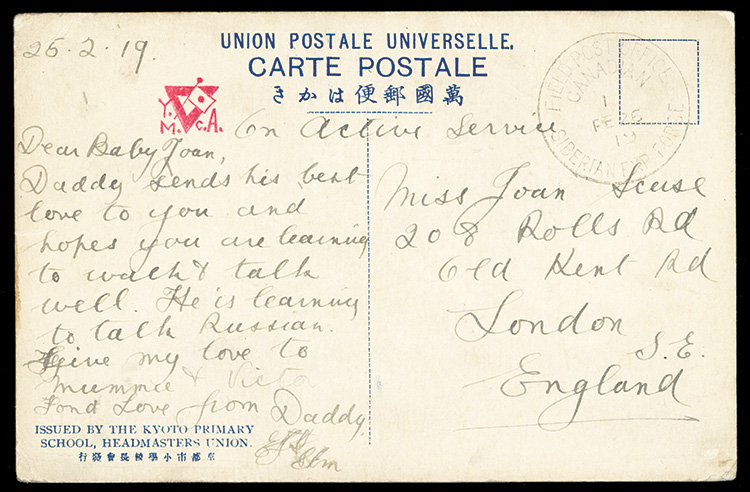 25.2.19.
UNION POSTALE UNIVERSELLE.
CARTE POSTALE
きかは便郵國萬
Y.M.C.A.
On Active Service
FIELD POST OFFICE
CANADIAN
1
FE 26
19
SIBERIAN EXP. FORCE
Dear Baby Joan,
Daddy sends his best
love to you and
hopes you are learning
to walk & talk
well. He is learning
to talk Russian.
Give my love to
Mummie &
Fond Love from Daddy.
Miss Joan Scuse
208 Rolls Rd
Old Kent Rd
London
S.E.
England
ISSUED BY THE KYOTO PRIMARY
SCHOOL, HEADMASTERS UNION.
行發會長校學小市都京